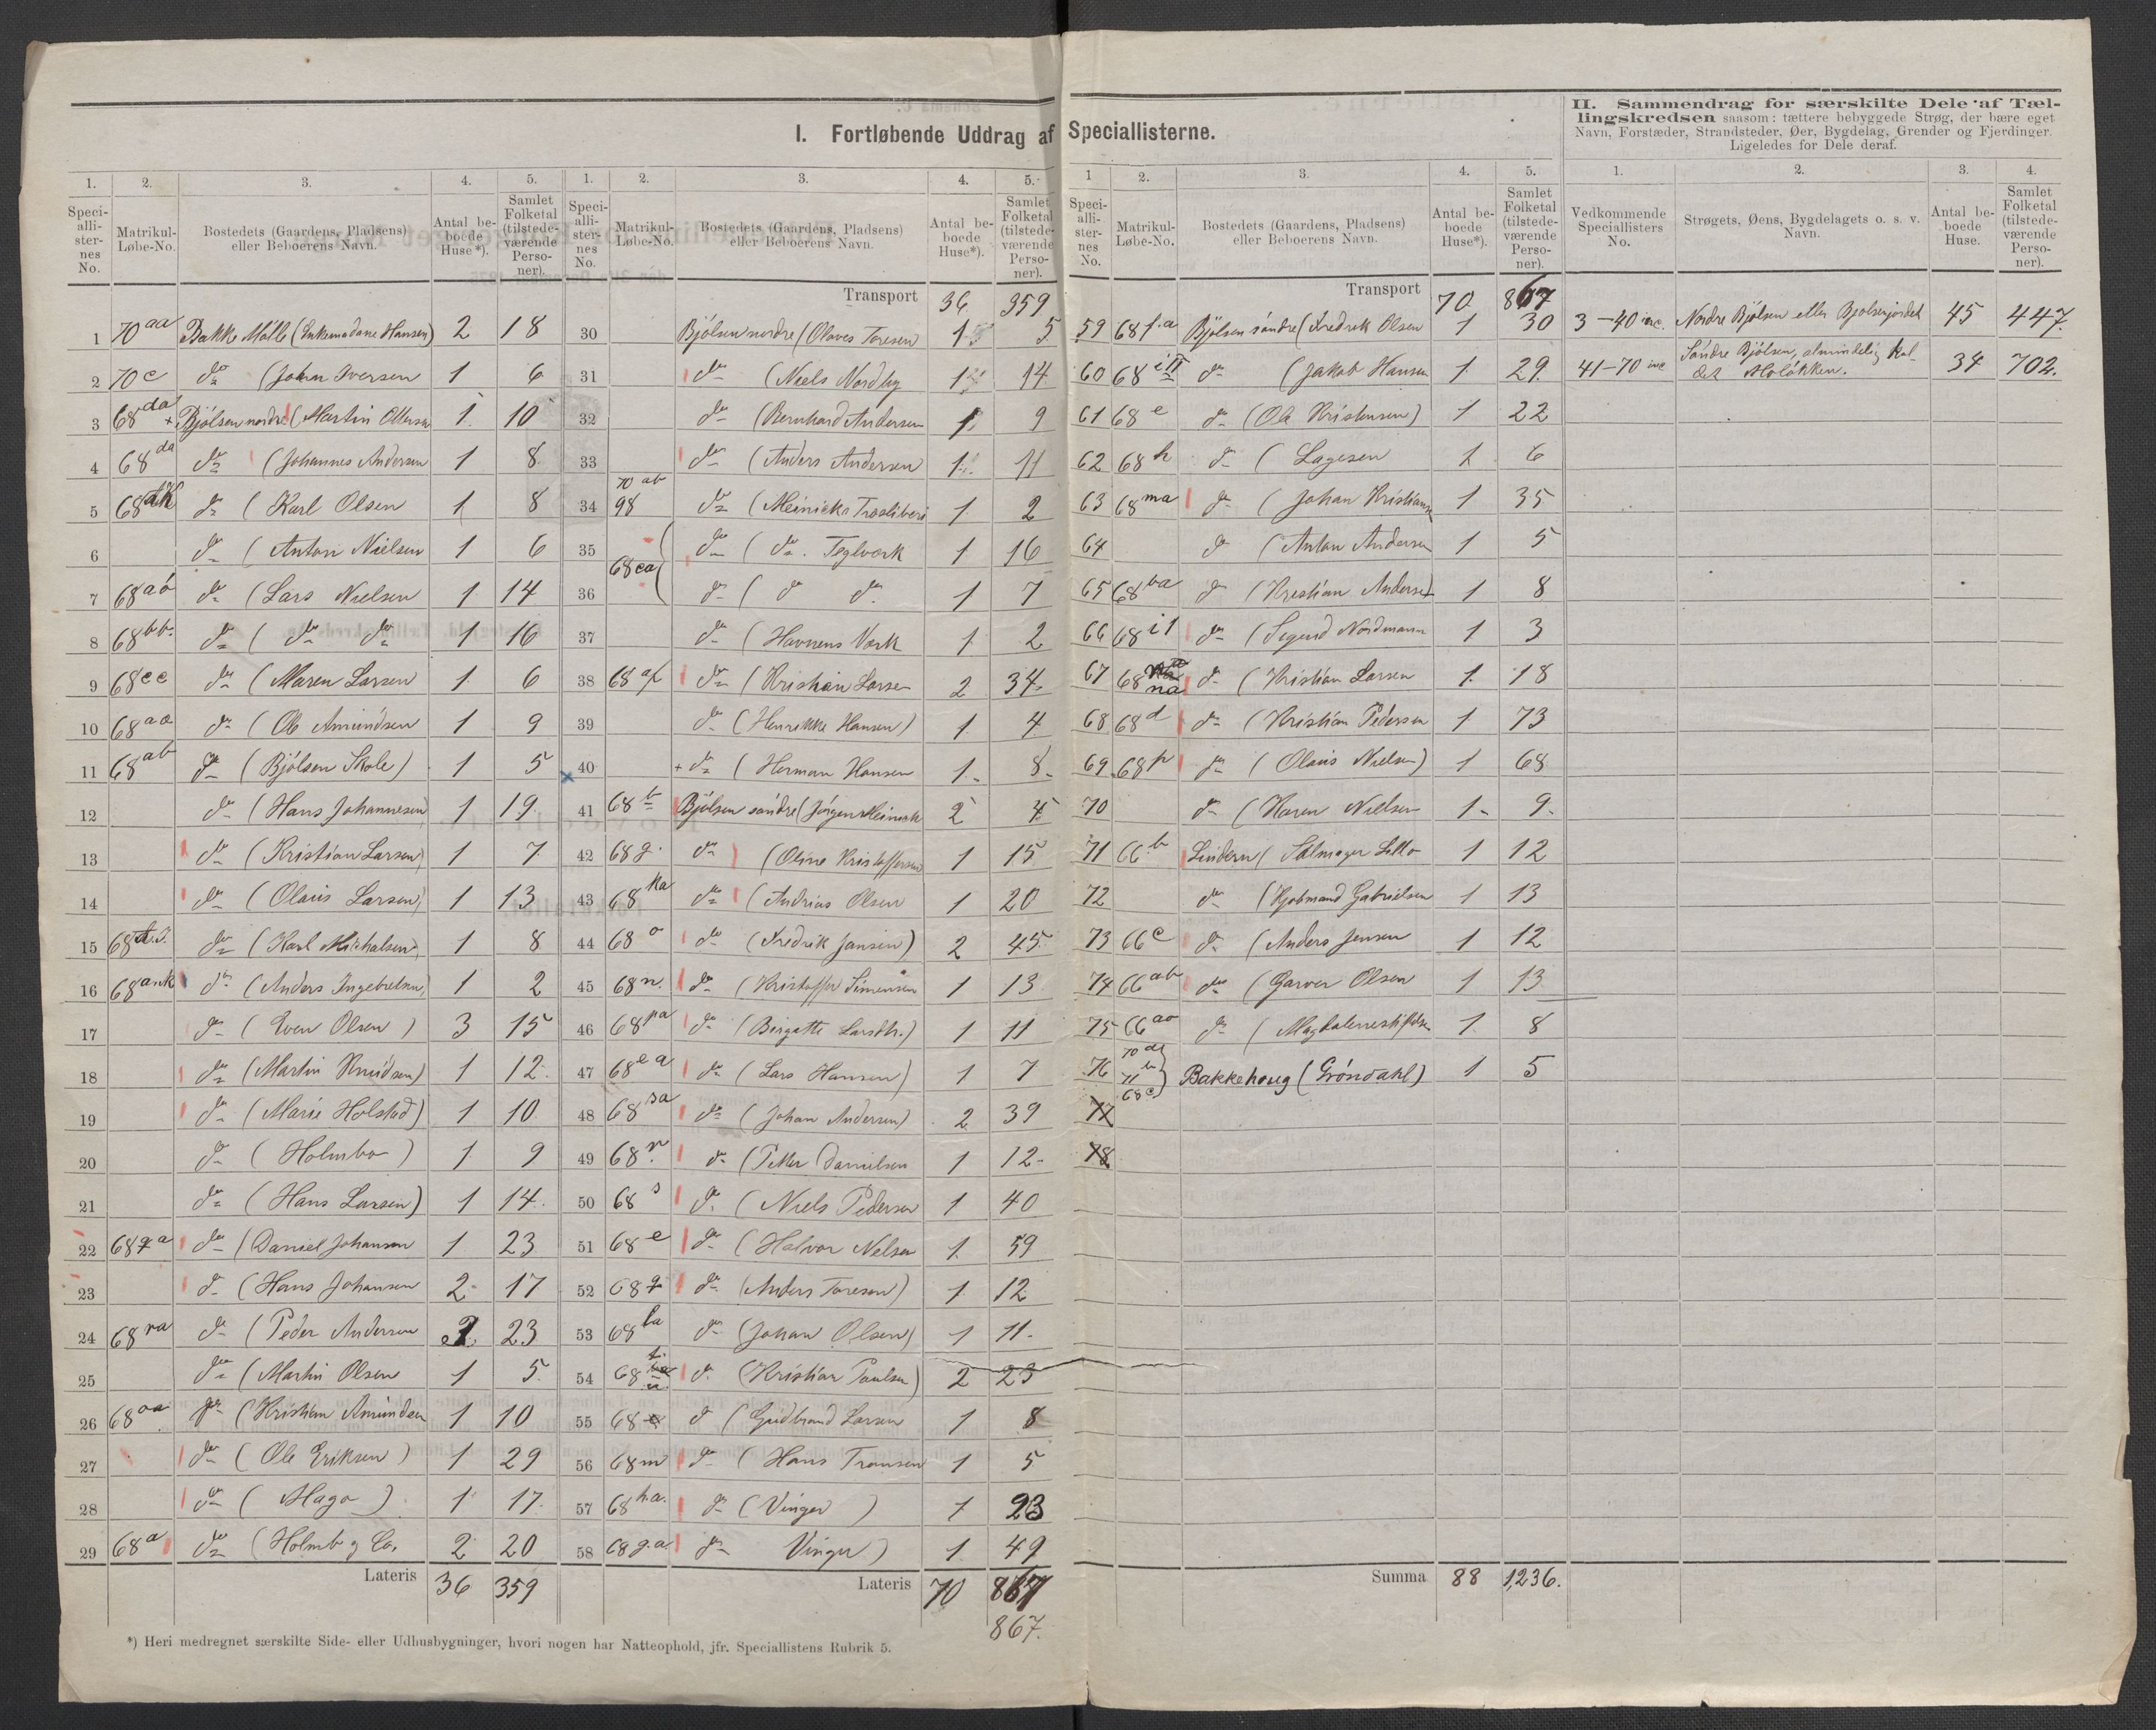 I. Fortløbende Uddrag af Speciallisterne.
1. 2. 3. 4. 5.
Speciallisternes No. Matrikul-Løbe-No. Bostedets (Gaardens, Pladsens) eller Beboerens Navn. Antal beboede Huse*). Samlet Folketal (tilstedeværende Personer).
1 70 aa Bakke Mølle (Enkemadame Hansen) 2 18
2 70 c do (Johan Iversen 1 6
3 68 da + Bjølsen nordre (Martin Ottersen 1 10
4 68 da do (Johannes Andersen 1 8
5 68 do (Karl Olsen 1 8
6 do (Anton Nielsen 1 6
7 68 ab do (Lars Nielsen 1 14
8 68 bb. do (do do 1 16
9 68 cc do (Maren Larsen 1 6
10 68 aa do (Ole Amundsen 1 9
11 68 ab do (Bjølsen Skole) 1 5
12 do (Hans Johannesen) 1 19.
13 do (Kristian Larsen) 1 7
14 do (Olaus Larsen) 1 13
15 68 do (Karl Michalsen 1 8
16 68 ank do (Anders Ingebretsen) 1 2
17 do (Even Olsen) 3 15
18 do (Martin Knudsen) 1 12
19 do (Marie Holstad) 1 10
20 do (Holmbo) 1 9
21 do (Hans Larsen) 1 14
22 68 qa do (Daniel Johansen 1 23
23 do (Hans Johansen 2 17
24 68 ra do (Peder Andersen 2 23
25 do (Martin Olsen 1 5
26 68 oa do (Kristian Amundsen 1 10
27 do (Ole Eriksen) 1 29
28 do (Hago) 1 17
29 68 a do (Holmb g Co. 2 20
Lateris 36 359
*) Heri medregnet særskilte Side- eller Udhusbygninger, hvori nogen har Natteophold, jfr. Speciallistens Rubrik 5.
1. 2. 3. 4. 5.
Speciallisternes No. Matrikul-Løbe-No. Bostedets (Gaardens, Pladsens) eller Beboerens Navn. Antal beboede Huse*). Samlet Folketal (tilstedeværende Personer).
Transport 36 359
30 Bjølsen nordre (Olaves Toresen 1 5
31 do (Niels Nordby 1 14
32 do (Bernhard Andersen 1 9
33 do (Anders Andersen 1 11
34 70 ab 98 do (Meinicks 1 2
35 do (do. Teglværk 1 16
68 ea
36 do (do do. 1 7
37 do (Havnens Værk 1 2
38 68 af do (Kristian Larsen 2 34
39 do (Henrikke Hansen) 1 4
40 + do (Herman Hansen 1 8
41 68 b Bjølsen søndre (Jørgen Meinich 2 4
42 68 g. do (Oline Kristoffersen 1 15
43 68 ka do (Andrias Olsen 1 20
44 68 o do (Fredrik Jansen) 2 45
45 68 n. do (Kristoffer Simensen 1 13
46 68 pa do (Birgitte Larsdtr.) 1 11
47 68 ea do (Lars Hansen) 1 7
48 68 sa do (Johan Andersen) 2 39
49 68 r. do (Petter Danielsen 1 12
50 68 s do (Niels Pedersen 1 40
51 68 e do (Halvor Nelsen 1 59
52 68 q do (Anders Toresen) 1 12
53 68 la do (Johan Olsen) 1 11
54 68 do (Kristian Paulsen) 2 23
55 68 do (Gudbrand Larsen 1 8
56 68 m do (Hans Transen 1 5
57 68 ha. do (Vinger) 1 23
58 68 g.a. do Vinger) 1 49
Lateris 70 867
867.
1 2. 3. 4. 5.
Speciallisternes No. Matrikul-Løbe-No. Bostedets (Gaardens, Pladsens) eller Beboerens Navn. Antal beboede Huse*). Samlet Folketal (tilstedeværende Personer).
Transport 70 867
59 68 f.a Bjølsen søndre (Fredrik Olsen 1 30
60 68 i II do (Jakob Hansen 1 29
61 68 e do (Ole Kristensen) 1 22
62 68 h do (Lagesen 1 6
63 68 ma do (Johan Kristiansen 1 35
64 do (Anton Andersen 1 5
65 68 ba do (Kristian Andersen 1 8
66 68 i 1 do (Sigurd Nordmann 1 3
67 68 na do (Kristian Larsen 1 18
68 68 d do (Kristian Pedersen 1 73
69 68 p do (Olaus Nielsen) 1 68
70 do (Karen Nielsen 1 9
71 66 b Lindern (Sælmager Lillo 1 12
72 do (Kjøbmand Gabrielsen 1 13
73 66 c do (Anders Jensen 1 12
74 66 ab do (Garver Olsen 1 13
75 66 aa do (Magdalenestiftelsen 1 8
76 70 d 71 b 68 c Bakkehaug (Grøndahl) 1 5
77
78
Summa 88 1,236.
II. Sammendrag for særskilte Dele af Tællingskredsen saasom: tættere bebyggede Strøg, der bære eget Navn, Forstæder, Strandsteder, Øer, Bygdelag, Grender og Fjerdinger. Ligeledes for Dele deraf.
1. 2. 3. 4.
Vedkommende Speciallisters No. Strøgets, Øens, Bygdelagets o. s. v. Navn. Antal beboede Huse. Samlet Folketal (tilstedeværende Personer).
3–40 inc. Nordre Bjølsen eller Bjølsenjordet 45 447.
41–70 inc Søndre Bjølsen, almindelig kaldet Moløkken. 34 702.